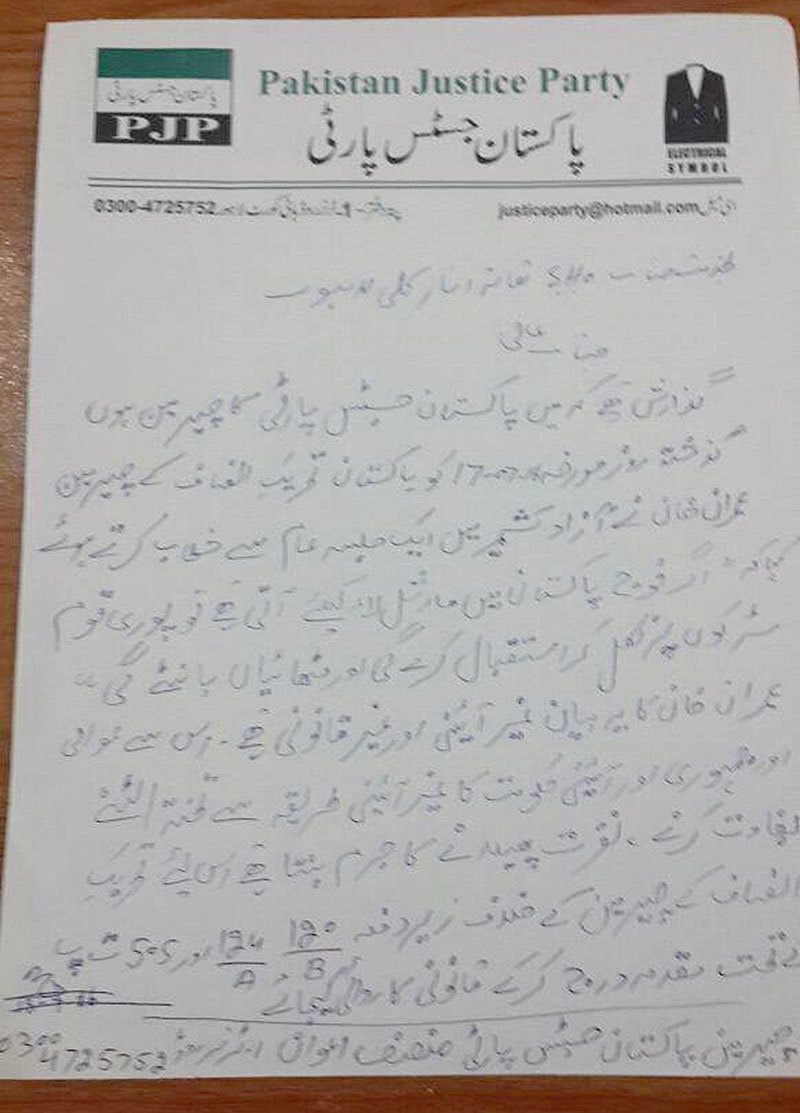 پاکستان جسٹس پارٹی
PJP
Pakistan Justice Party
پاکستان جسٹس پارٹی
ELECTRICAL
SYMBOL
0300-4725752
justiceparty@hotmail.com
بخدمت جناب SHO تھانہ انار کلی لاہور
جناب عالی
گذارش ہے کہ میں پاکستان جسٹس پارٹی کا چیئرمین ہوں
گذشتہ روز مورخہ 17-07-16 کو پاکستان تحریک انصاف کے چیئرمین
عمران خان نے آزاد کشمیر میں ایک جلسہ عام سے خطاب کرتے ہوئے
کہا کہ "اگر فوج پاکستان میں مارشل لاء کیلئے آتی ہے تو پوری قوم
سڑکوں پر نکل کر استقبال کرے گی اور مٹھائیاں بانٹے گی"
عمران خان کا یہ بیان غیر آئینی اور غیر قانونی ہے۔ اس سے عوامی
اور جمہوری اور آئینی حکومت کا غیر آئینی طریقہ سے تختہ الٹنے
بغاوت کرنے۔ نفرت پھیلانے کا جرم بنتا ہے اس لئے تحریک
انصاف کے چیئرمین کے خلاف زیر دفعہ 120/B، 124/A اور 505 ت پ
کے تحت مقدمہ درج کر کے قانونی کاروائی کی جائے
چیئرمین پاکستان جسٹس پارٹی منصف اعوان 1۔ٹرنر روڈ 0300 4725752